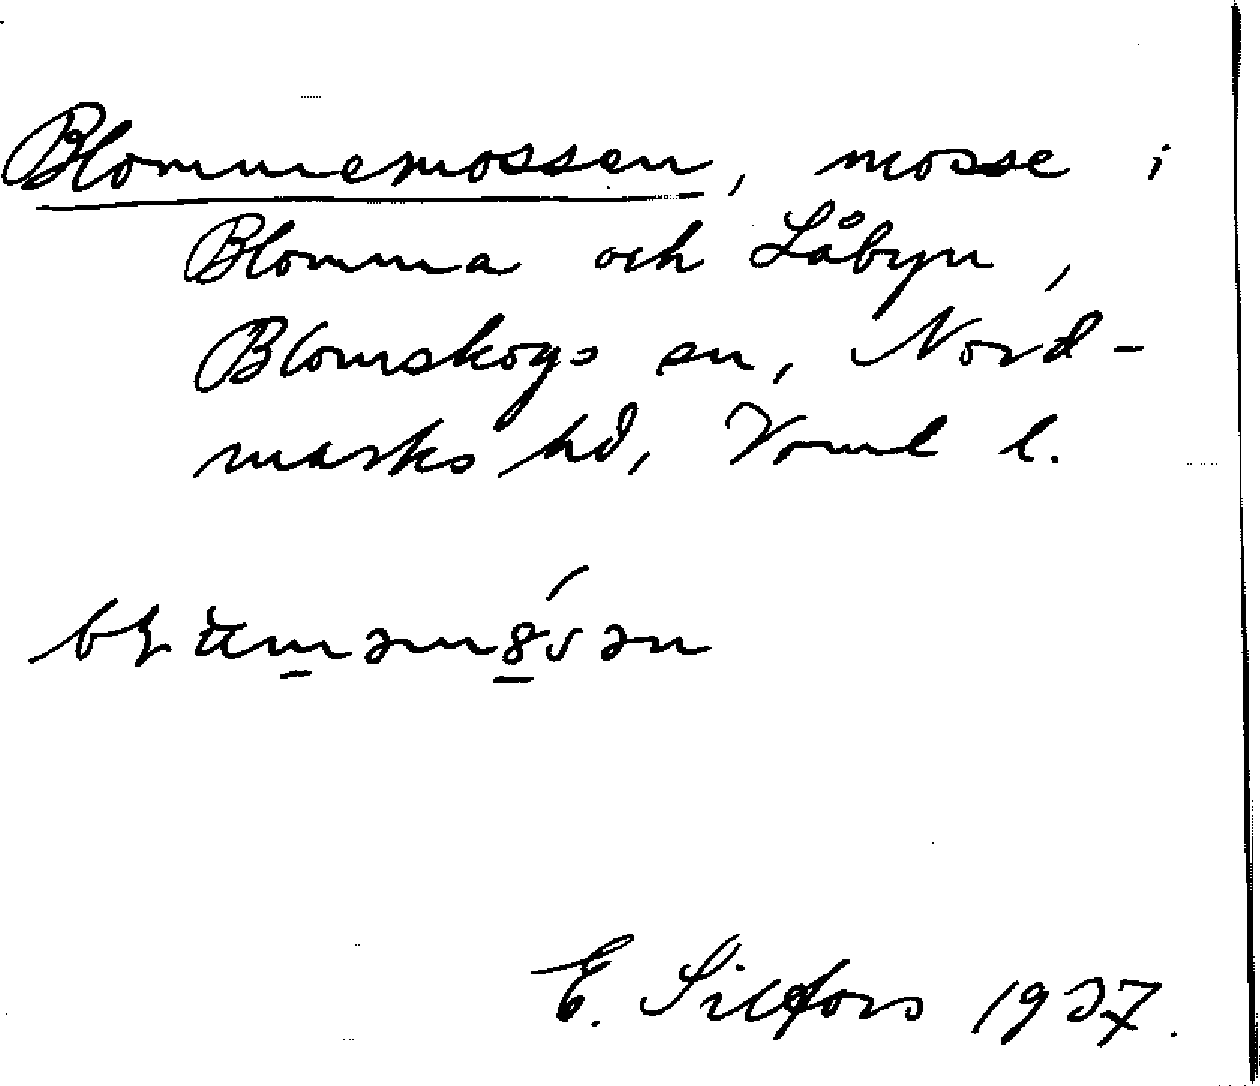 Blommemossen, mosse i
Blomma och Låbyn,
Blomskogs sn, Nord-
marks hd, Vrml l.
E. Silfors 1937.